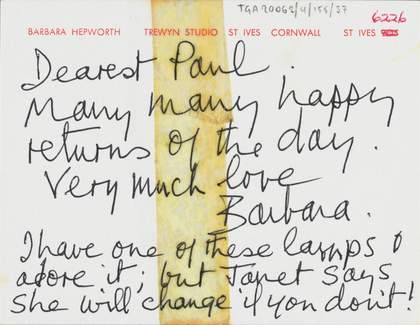 TGA 20062/4/155/37
BARBARA HEPWORTH TREWYN STUDIO ST IVES CORNWALL ST IVES 6226
Dearest Paul.
Many many happy
returns of the day.
Very much love
Barbara.
I have one of these lamps &
adore it; but Janet says
she will change if you don't!